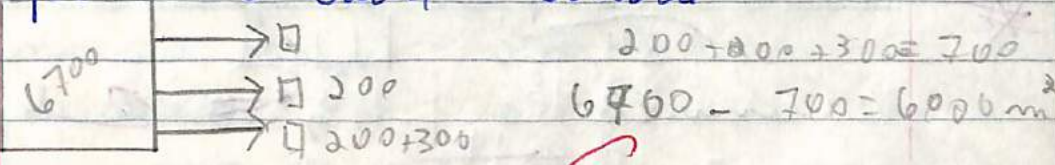 6700
200
200+300
200+200+300=700
6700 - 700=6000 m²